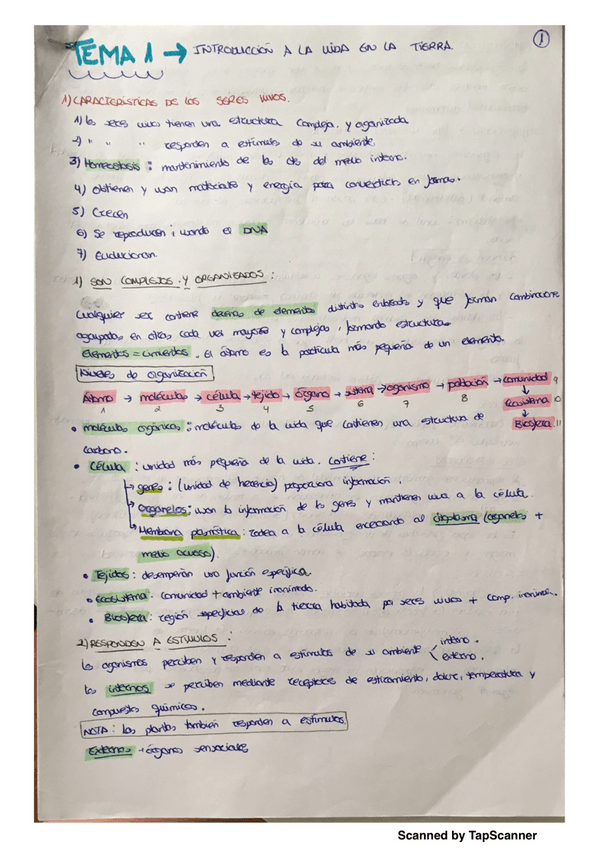 TEMA 1 → INTRODUCCIÓN A LA VIDA EN LA TIERRA.
1
1) CARACTERÍSTICAS DE LOS SERES VIVOS.
1) Los seres vivos tienen una estructura compleja y organizada
2) " " " responden a estímulos de su ambiente.
3) Homeostasis: mantenimiento de las cts del medio interno.
4) Obtienen y usan materiales y energía para convertirlos en formas.
5) Crecen
6) Se reproducen; usando el DNA
7) Evolucionan.
1) SON COMPLEJOS Y ORGANIZADOS:
Cualquier ser contiene decenas de elementos distintos enlazados y que forman combinaciones
agrupadas en otras, cada vez mayores y complejas, formando estructuras
elementos = cimientos. El átomo es la partícula más pequeña de un elemento.
Niveles de organización
Átomo → moléculas → célula → tejido → órgano → sistema → organismo → población → comunidad 9
1 2 3 4 5 6 7 8
↓
Ecosistema 10
↓
Biosfera 11
• moléculas orgánicas: moléculas de la vida que contienen una estructura de
carbono.
• Célula: unidad más pequeña de la vida. Contiene:
→ genes: (unidad de herencia) proporciona información.
→ Organelos: usan la información de los genes y mantienen viva a la célula.
→ Membrana plasmática: rodea a la célula encerrando al citoplasma (organelos +
medio acuoso).
• Tejidos: desempeñan una función específica
• Ecosistema: comunidad + ambiente inanimado.
• Biosfera: región específicas de la tierra habitada por seres vivos + comp. inanimados.
2) RESPONDEN A ESTÍMULOS:
Los organismos perciben y responden a estímulos de su ambiente < interno.
externo.
Los internos se perciben mediante receptores de estiramiento, dolor, temperatura y
compuestos químicos.
NOTA: Las plantas también responden a estímulos
Externos → órganos sensoriales
Scanned by TapScanner